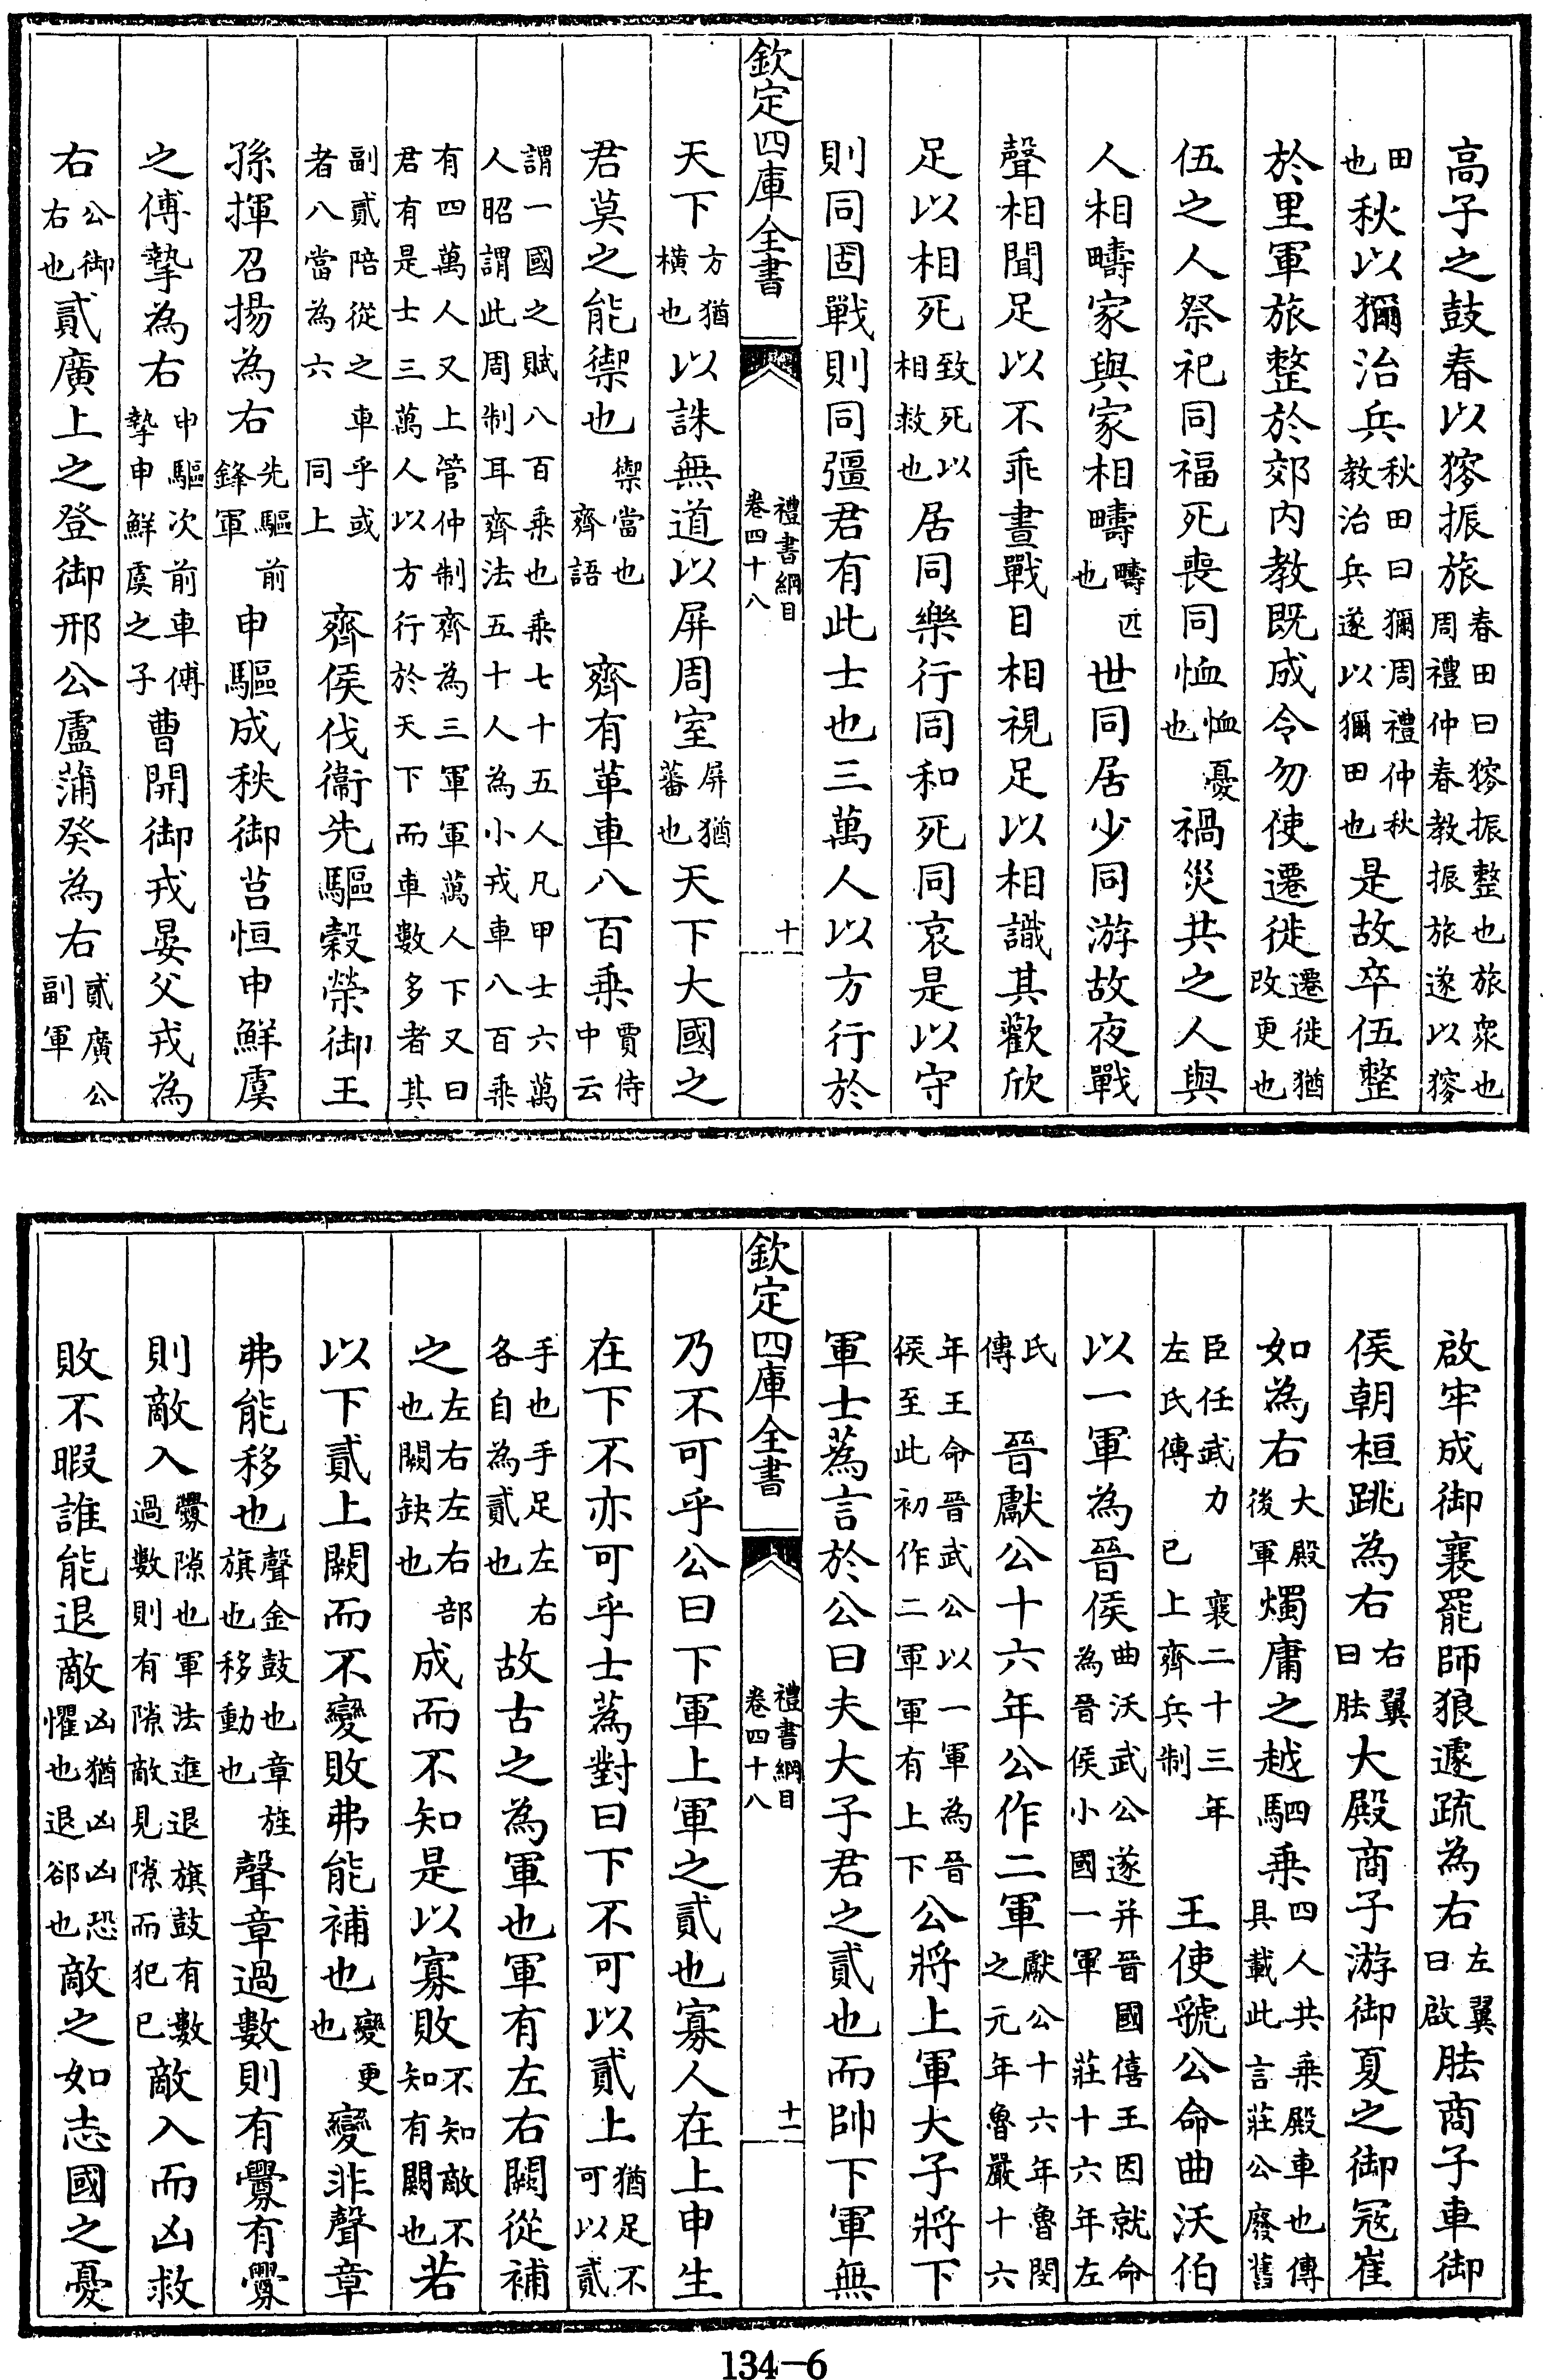 高子之鼓春以獀振旅春田曰獀振整也旅衆也周禮仲春教振旅遂以獀
田也秋以獮治兵秋田曰獮周禮仲秋教治兵遂以獮田也是故卒伍整
於里軍旅整於郊内教既成令勿使遷徙遷徙猶改更也
伍之人祭祀同福死喪同恤恤憂也禍災共之人與
人相疇家與家相疇疇匹也世同居少同游故夜戰
聲相聞足以不乖晝戰目相視足以相識其歡欣
足以相死致死以相救也居同樂行同和死同哀是以守
則同固戰則同彊君有此士也三萬人以方行於
欽定四庫全書 禮書綱目卷四十八 十
天下方猶橫也以誅無道以屏周室屏猶蕃也天下大國之
君莫之能禦也禦當也齊語 齊有革車八百乘賈侍中云
謂一國之賦八百乘也乘七十五人凡甲士六萬人昭謂此周制耳齊法五十人為小戎車八百乘
有四萬人又上管仲制齊為三軍軍萬人下又曰君有是士三萬人以方行於天下而車數多者其
副貳陪從之車乎或者八當為六同上 齊侯伐衞先驅穀榮御王
孫揮召揚為右先驅前鋒軍申驅成秩御莒恒申鮮虞
之傅摯為右申驅次前車傅摯申鮮虞之子曹開御戎晏父戎為
右公御右也貳廣上之登御邢公盧蒲癸為右貳廣公副軍
啟牢成御襄罷師狼遽疏為右左翼曰啟胠商子車御
侯朝桓跳為右右翼曰胠大殿商子游御夏之御寇崔
如為右大殿後軍燭庸之越駟乘四人共乘殿車也傳具載此言莊公廢舊
臣任武力 襄二十三年左氏傳 已上齊兵制 王使虢公命曲沃伯
以一軍為晉侯曲沃武公遂并晉國僖王因就命為晉侯小國一軍莊十六年左
氏傳 晉獻公十六年公作二軍獻公十六年魯閔之元年魯嚴十六
年王命晉武公以一軍為晉侯至此初作二軍軍有上下公將上軍大子將下
軍士蒍言於公曰夫大子君之貳也而帥下軍無
欽定四庫全書 禮書綱目卷四十八 十一
乃不可乎公曰下軍上軍之貳也寡人在上申生
在下不亦可乎士蒍對曰下不可以貳上猶足不可以貳
手也手足左右各自為貳也故古之為軍也軍有左右闕從補
之左右左右部也闕缺也成而不知是以寡敗不知敵不知有闕也若
以下貳上闕而不變敗弗能補也變更也變非聲章
弗能移也聲金鼓也章旌旗也移動也聲章過數則有釁有釁
則敵入釁隙也軍法進退旗鼓有數過數則有隙敵見隙而犯己敵入而凶救
敗不暇誰能退敵凶猶凶凶恐懼也退郤也敵之如志國之憂
134-6